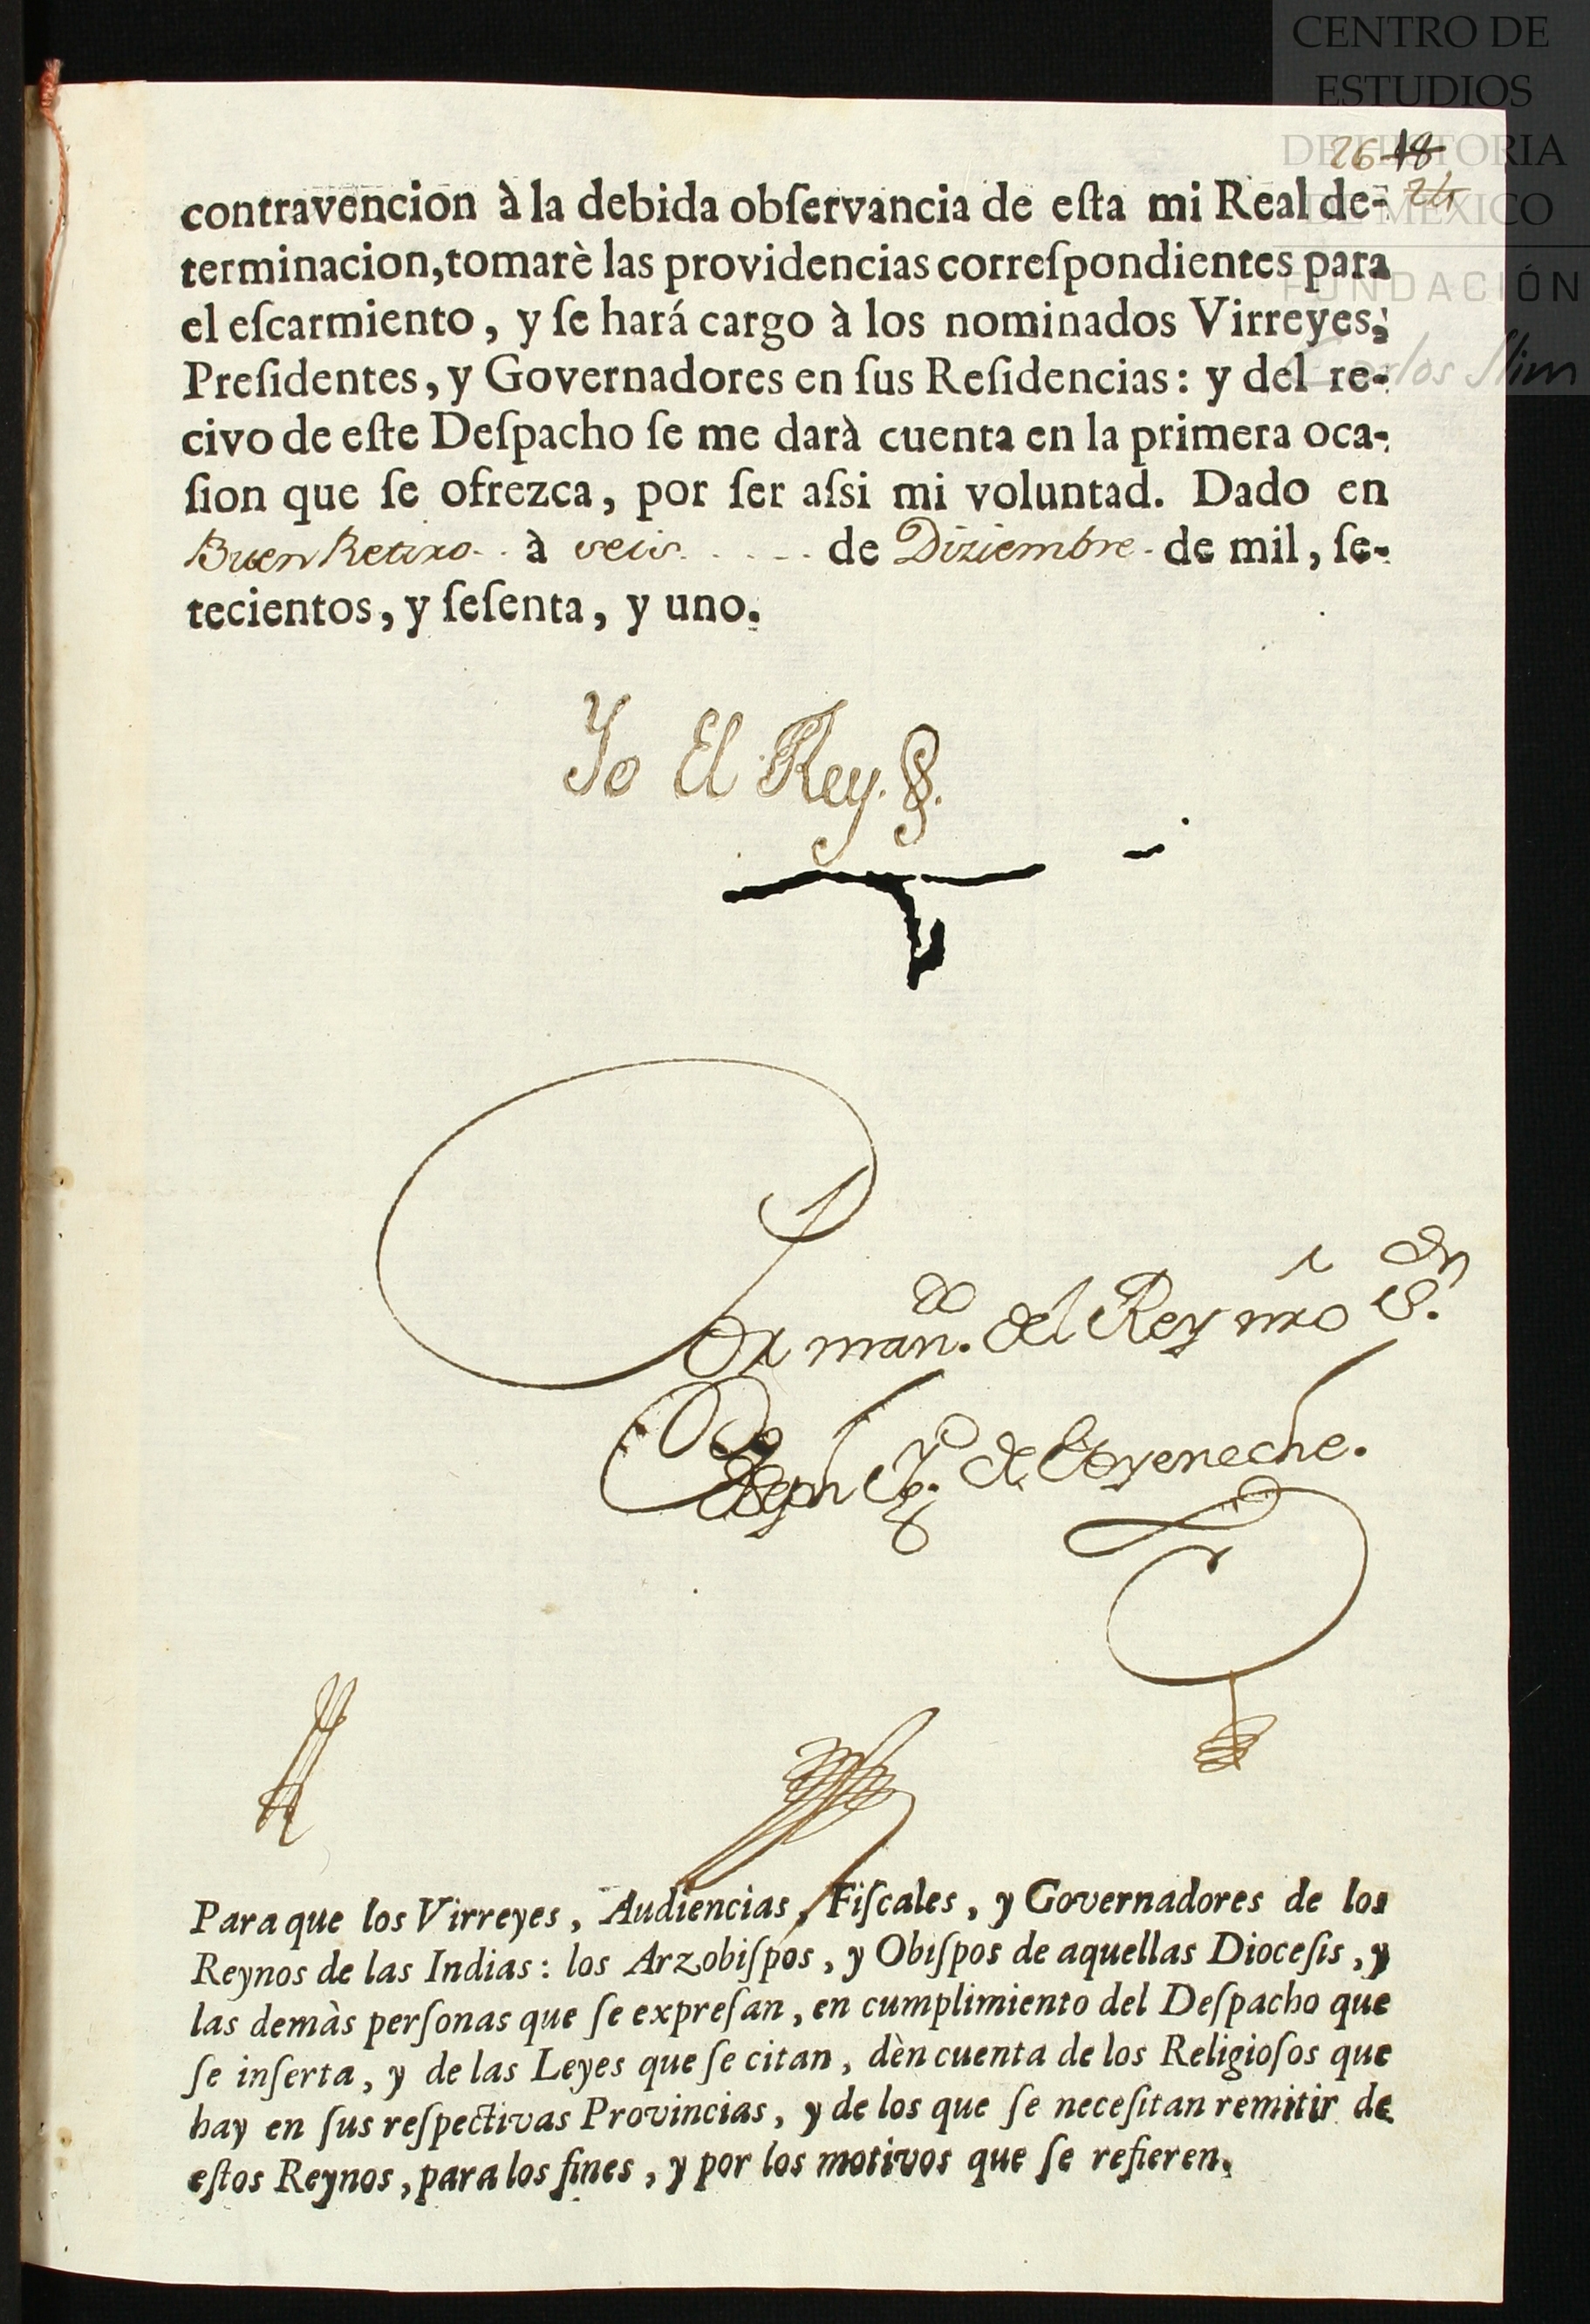 CENTRO DE
ESTUDIOS
DE HISTORIA
DE MÉXICO
FUNDACIÓN
Carlos Slim
26 18
24
contravencion à la debida obſervancia de eſta mi Real de-
terminacion, tomarè las providencias correſpondientes para
el eſcarmiento, y ſe hará cargo à los nominados Virreyes,
Preſidentes, y Governadores en ſus Reſidencias: y del re-
civo de eſte Deſpacho ſe me darà cuenta en la primera oca-
ſion que ſe ofrezca, por ſer aſsi mi voluntad. Dado en
Buen Retiro à seis de Diziembre de mil, ſe-
tecientos, y ſeſenta, y uno.
Yo El Rey.
Por man.do del Rey nro S.or
Joseph Ig.o de Goyeneche.
Para que los Virreyes, Audiencias, Fiſcales, y Governadores de los
Reynos de las Indias: los Arzobiſpos, y Obiſpos de aquellas Dioceſis, y
las demàs perſonas que ſe expreſan, en cumplimiento del Deſpacho que
ſe inſerta, y de las Leyes que ſe citan, dèn cuenta de los Religioſos que
hay en ſus reſpectivas Provincias, y de los que ſe neceſitan remitir de
eſtos Reynos, para los fines, y por los motivos que ſe refieren.